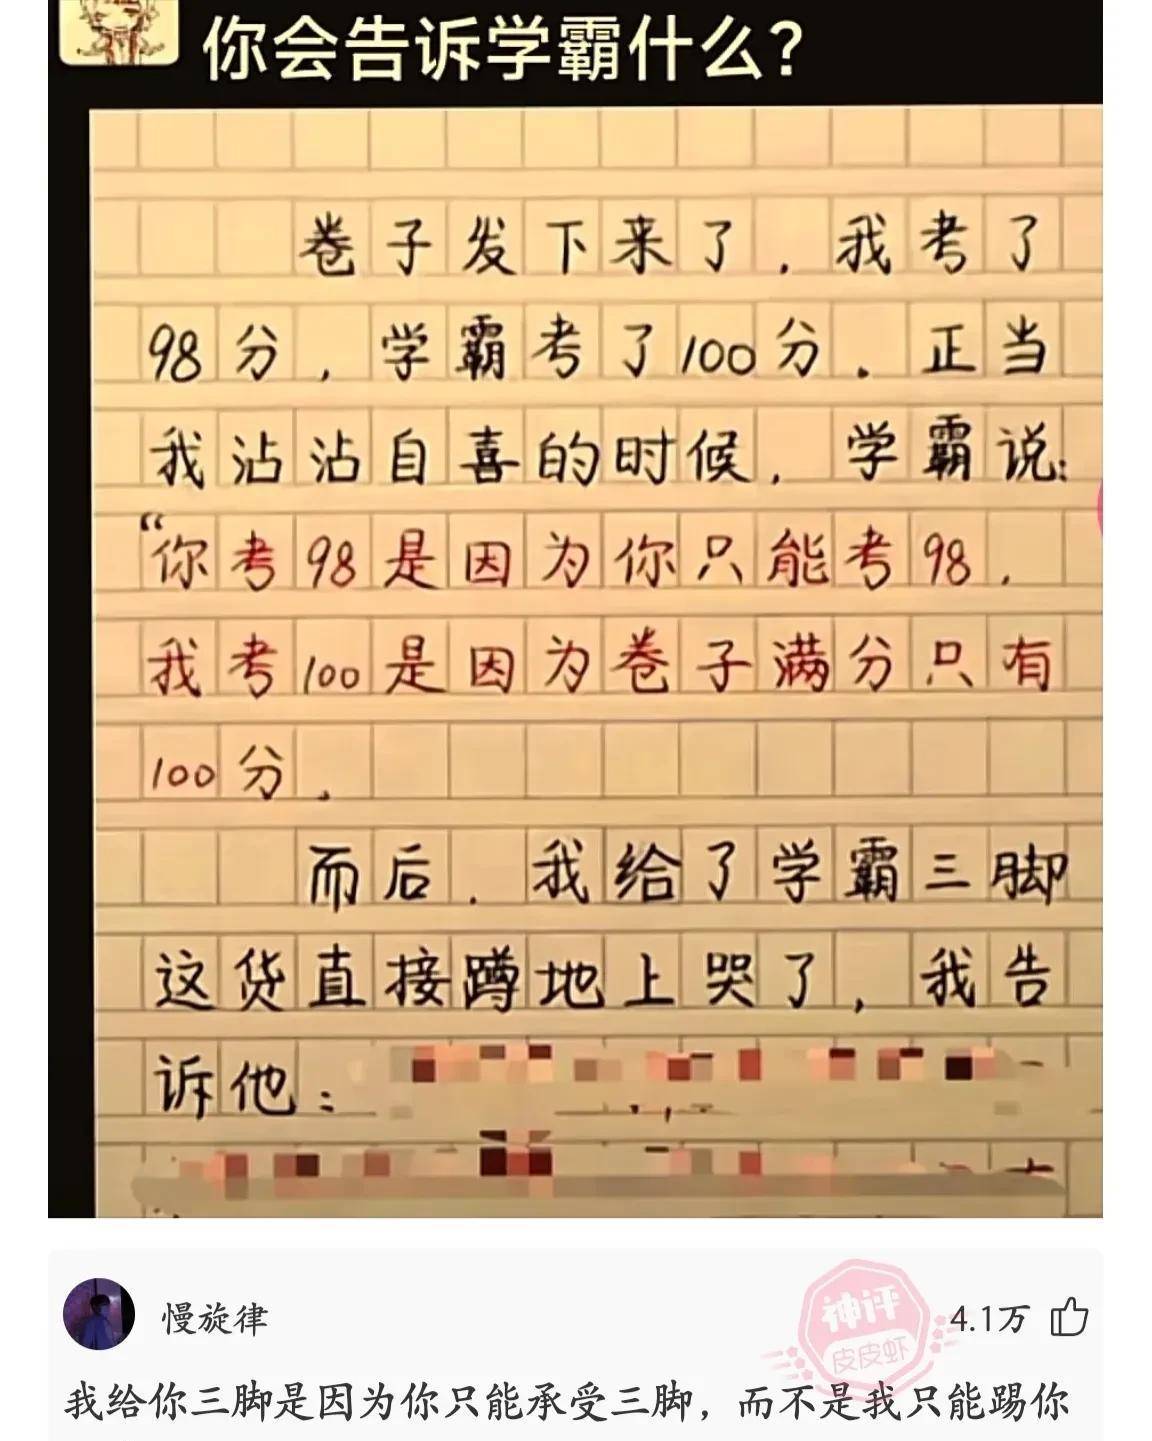 你会告诉学霸什么?
卷子发下来了，我考了
98分，学霸考了100分．正当
我沾沾自喜的时候，学霸说：
“你考98是因为你只能考98，
我考100是因为卷子满分只有
100分．
而后．我给了学霸三脚
这货直接蹲地上哭了，我告
诉他：
慢旋律
神评
皮皮虾
4.1万
我给你三脚是因为你只能承受三脚，而不是我只能踢你